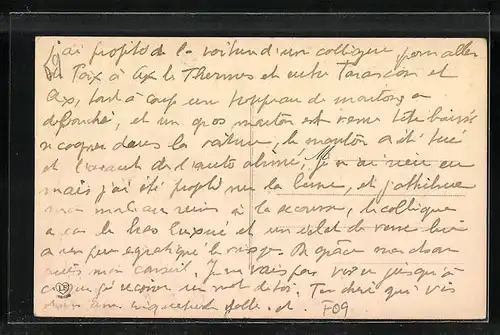 j'ai profité de la voiture d'un collègue pour aller
de Foix à Ax les Thermes et entre Tarascon et
Ax, tout à coup un troupeau de moutons a
débouché, et un gros mouton est venu tête baissée
se cogner dans la voiture, le mouton a été tué
et l'avant de l'auto abimé, je n'ai rien eu
mais j'ai été projeté sur la et j'attribue
mon mal au reins à la secousse, le collègue
a eu le bras luxé et un éclat de verre lui
a un peu égratigné le visage. mon cher
mon conseil. Je ne vais pas jusqu'à
ce que je reçoive un mot de toi. Tu dis que
dans une
F09